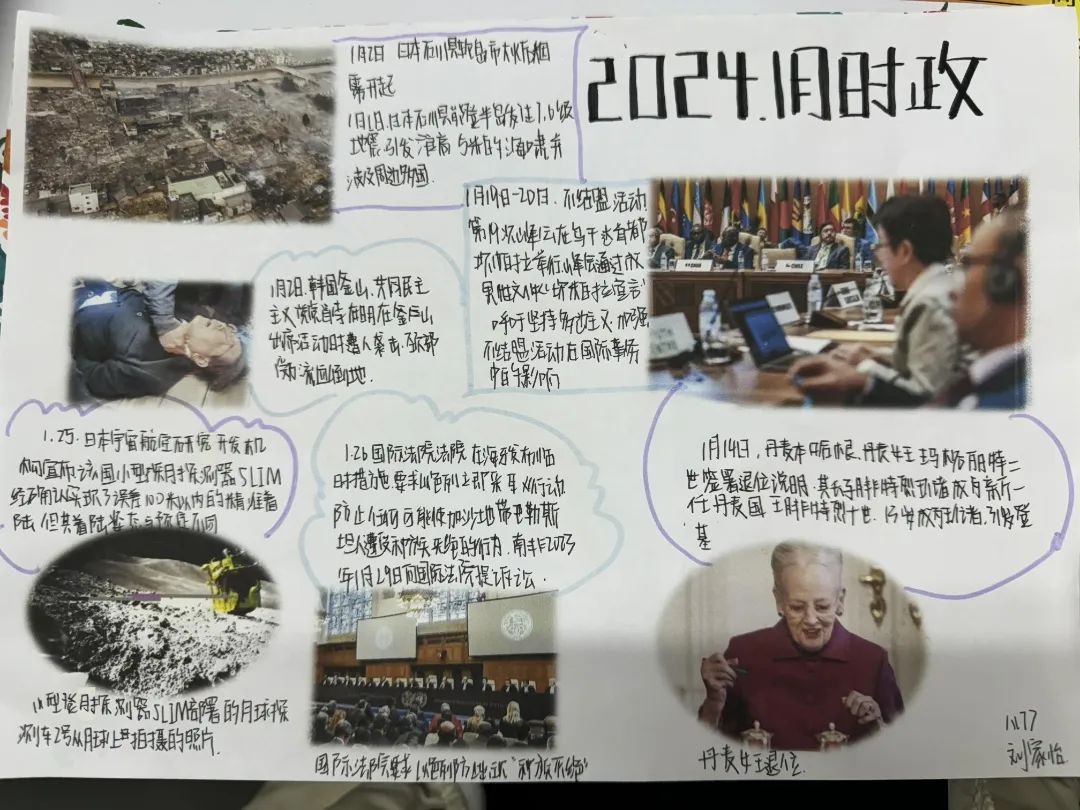 2024.1月时政
1月2日 日本石川县轮岛市大火后烟
雾升起
1月1日,日本石川县能登半岛发生7.6级
地震,引发
波及周边多国.
1月19日-20日,不结盟活动
第19次峰会在乌干达首都
坎帕拉举行,峰会通过成
果性文件《坎帕拉宣言》
呼吁坚持多边主义,加强
不结盟活动在国际事务
中的影响
1月2日,韩国釜山,共同民主
主义党党首李在明在釜山
出席活动时遭人袭击,颈部
受伤流血倒地.
1.25.日本宇宙航空研究开发机
构宣布该国小型探月探测器SLIM
经确认实现了误差100米以内的精准着
陆,但其着陆姿态与预page不同
1.26国际法院法院在海牙发布临
时措施,要求以色列立即采取行动
防止任何可能使加沙地带巴勒斯
坦人遭受种族灭绝的行为.南非2003
年1月29日向国际法院提诉讼.
1月14日,丹麦本哈根,丹麦女王玛格丽特二
世签署退位说明,其长子腓特烈
任丹麦国王腓特烈十世.
基
小型登月探测器SLIM部署的月球探
测车2号从月球上拍摄的照片.
国际法院要求以色列防止出现"种族灭绝"
丹麦女王退位.
刘家怡